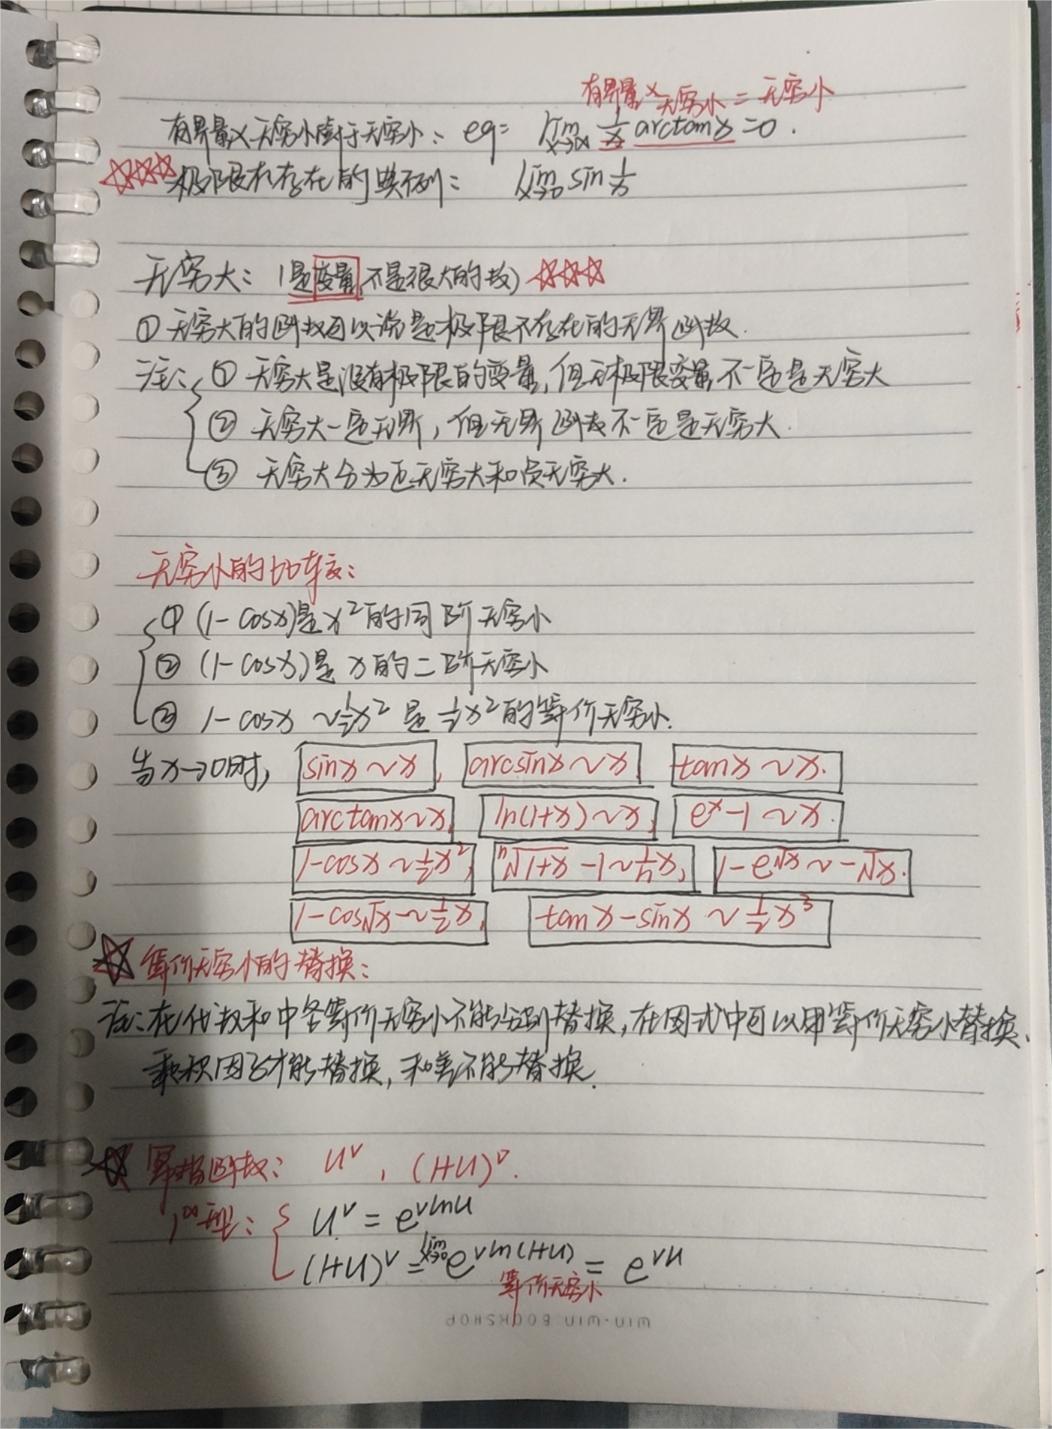 有界量×无穷小=无穷小
有界量×无穷小等于无穷小: eg= lim x→∞ 1/x arctanx=0.
极限不存在的典例: lim x→0 sin 1/x
无穷大: (是变量,不是很大的数)
① 无穷大的函数可以说是极限不存在的无界函数.
注: ① 无穷大是没有极限的变量,但无极限变量不一定是无穷大
② 无穷大一定无界,但无界函数不一定是无穷大.
③ 无穷大分为正无穷大和负无穷大.
无穷小的比较:
① (1-cosx)是x²的同阶无穷小
② (1-cosx)是x的二阶无穷小
③ 1-cosx ~ ½x² 是 ½x²的等价无穷小.
当x→0时, sinx~x, arcsinx~x, tanx~x.
arctanx~x, ln(1+x)~x, eˣ-1~x.
1-cosx~½x², ⁿ√(1+x) -1~1/n x, 1-e^√x ~ -√x.
1-cos√x~½x, tanx-sinx~½x³
等价无穷小的替换:
注:在代数和中各等价无穷小不能分别替换,在因式中可以用等价无穷小替换.
乘积因子才能替换,和差不能替换.
幂指函数: uᵛ, (1+u)ᵛ.
1^∞型: uᵛ = e^vlnu
(1+u)ᵛ = lim x→0 e^vln(1+u) = e^vu
等价无穷小
WIN-WIN BOOKSHOP